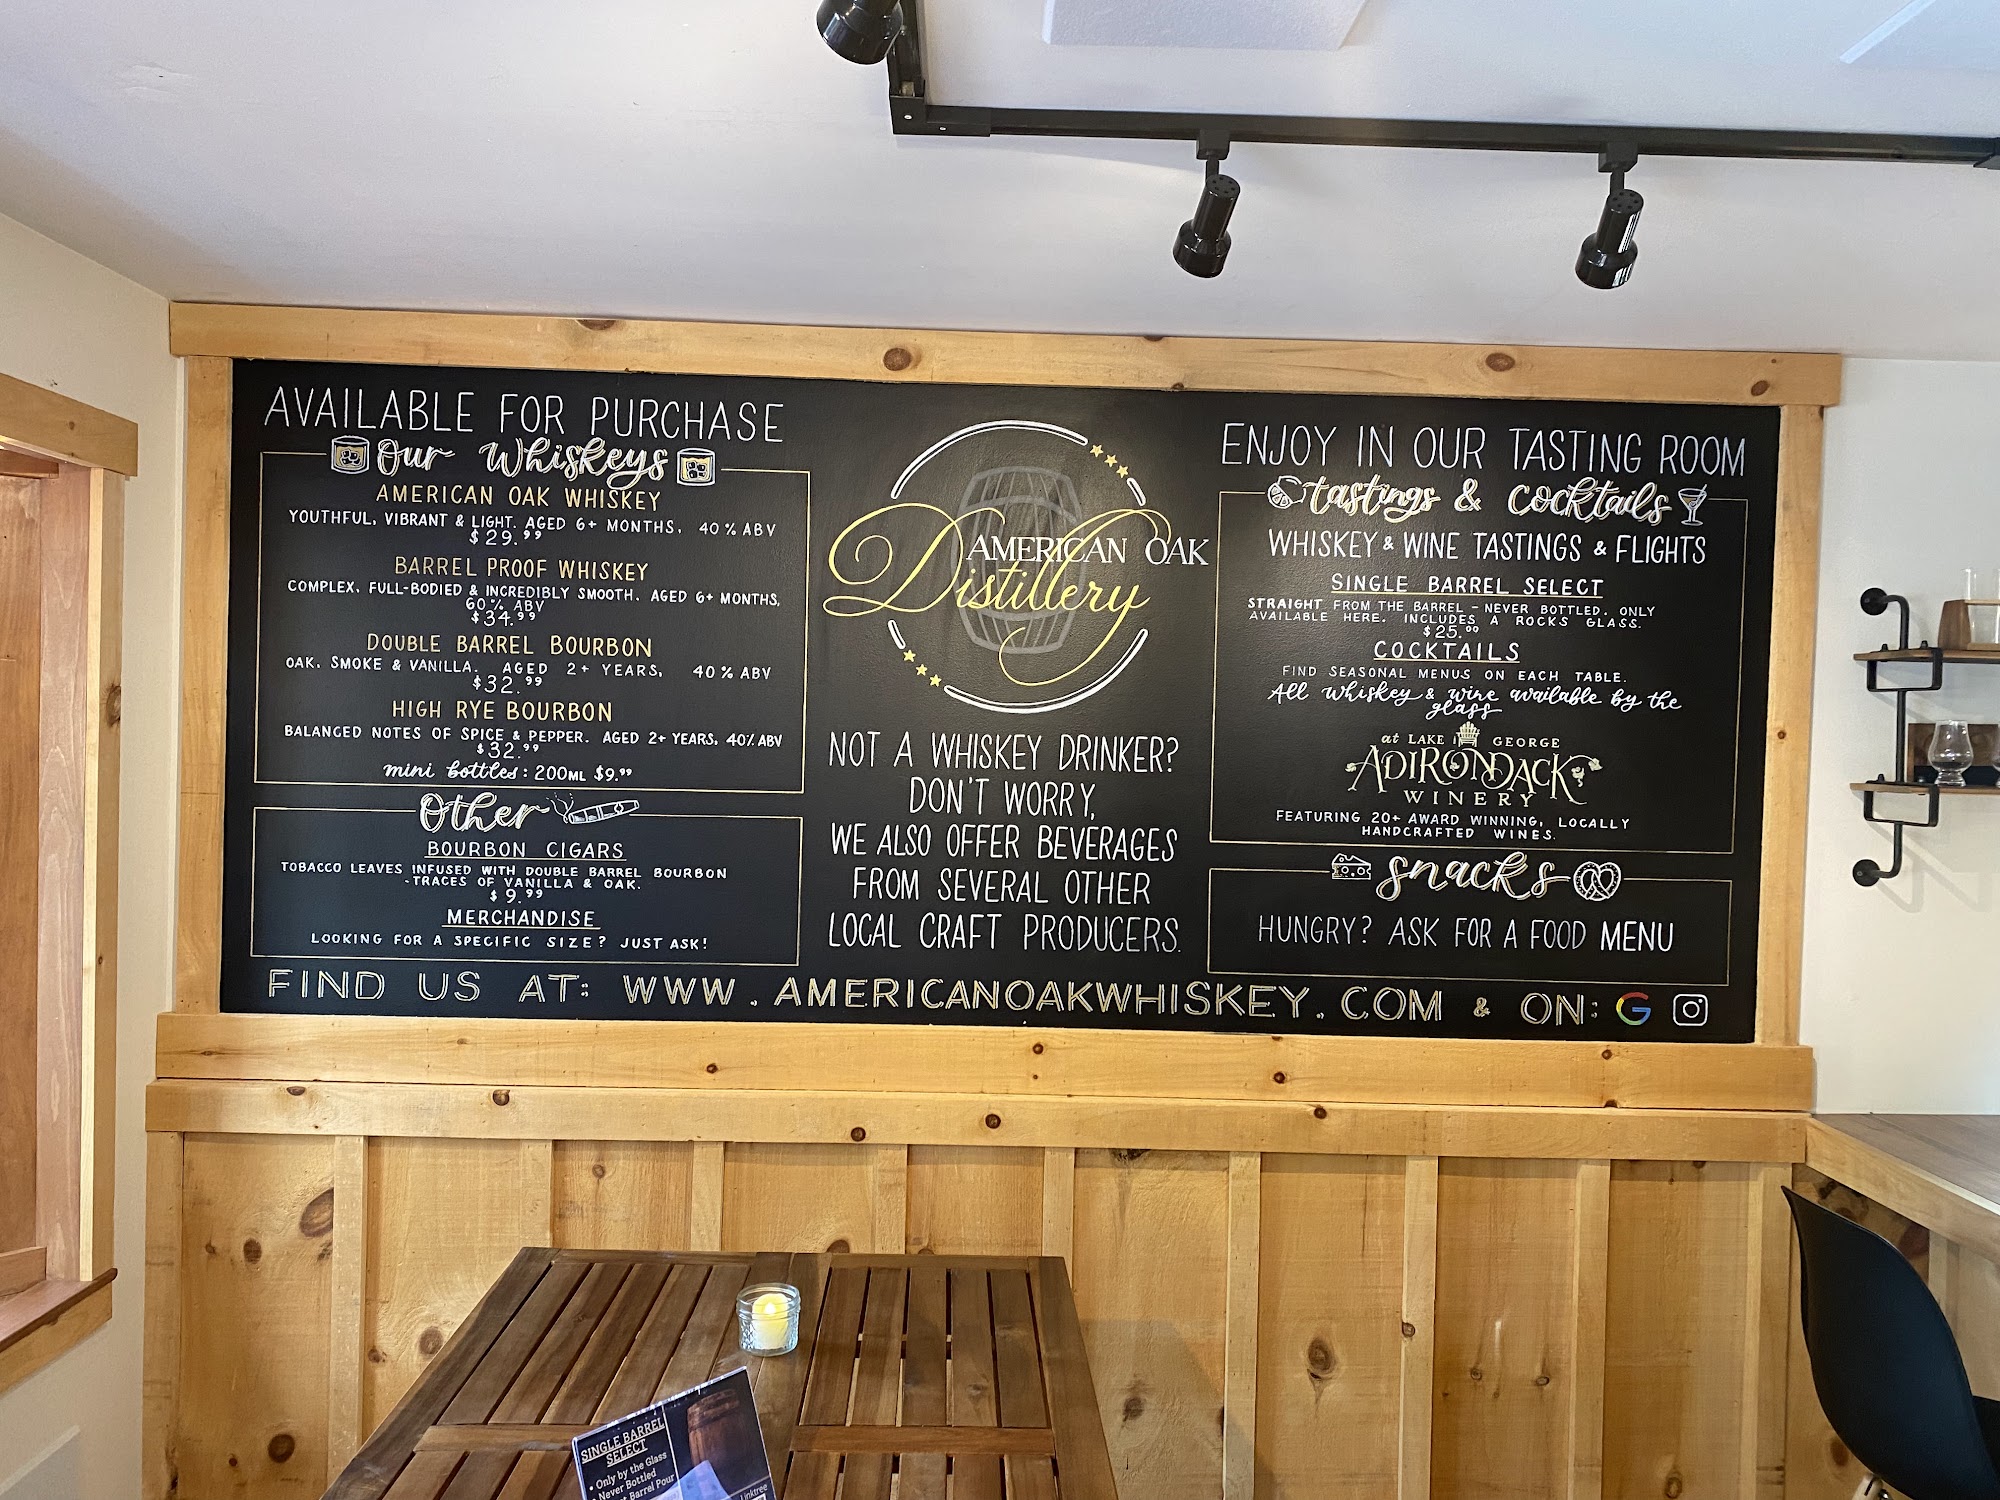 AVAILABLE FOR PURCHASE
Our Whiskeys
AMERICAN OAK WHISKEY
YOUTHFUL, VIBRANT & LIGHT. AGED 6+ MONTHS, 40% ABV
$29.99
BARREL PROOF WHISKEY
COMPLEX, FULL-BODIED & INCREDIBLY SMOOTH. AGED 6+ MONTHS,
60% ABV
$34.99
DOUBLE BARREL BOURBON
OAK, SMOKE & VANILLA. AGED 2+ YEARS, 40% ABV
$32.99
HIGH RYE BOURBON
BALANCED NOTES OF SPICE & PEPPER. AGED 2+ YEARS, 40% ABV
$32.99
mini bottles: 200ML $9.99
Other
BOURBON CIGARS
TOBACCO LEAVES INFUSED WITH DOUBLE BARREL BOURBON
-TRACES OF VANILLA & OAK.
$9.99
MERCHANDISE
LOOKING FOR A SPECIFIC SIZE? JUST ASK!
AMERICAN OAK
Distillery
NOT A WHISKEY DRINKER?
DON'T WORRY,
WE ALSO OFFER BEVERAGES
FROM SEVERAL OTHER
LOCAL CRAFT PRODUCERS.
ENJOY IN OUR TASTING ROOM
tastings & cocktails
WHISKEY & WINE TASTINGS & FLIGHTS
SINGLE BARREL SELECT
STRAIGHT FROM THE BARREL - NEVER BOTTLED. ONLY
AVAILABLE HERE. INCLUDES A ROCKS GLASS.
$25.00
COCKTAILS
FIND SEASONAL MENUS ON EACH TABLE.
All whiskey & wine available by the
glass
at LAKE GEORGE
ADIRONDACK
WINERY
FEATURING 20+ AWARD WINNING, LOCALLY
HANDCRAFTED WINES.
snacks
HUNGRY? ASK FOR A FOOD MENU
FIND US AT: WWW.AMERICANOAKWHISKEY.COM & ON: G
SINGLE BARREL
SELECT
• Only by the Glass
• Never Bottled
Barrel Pour
Linktree